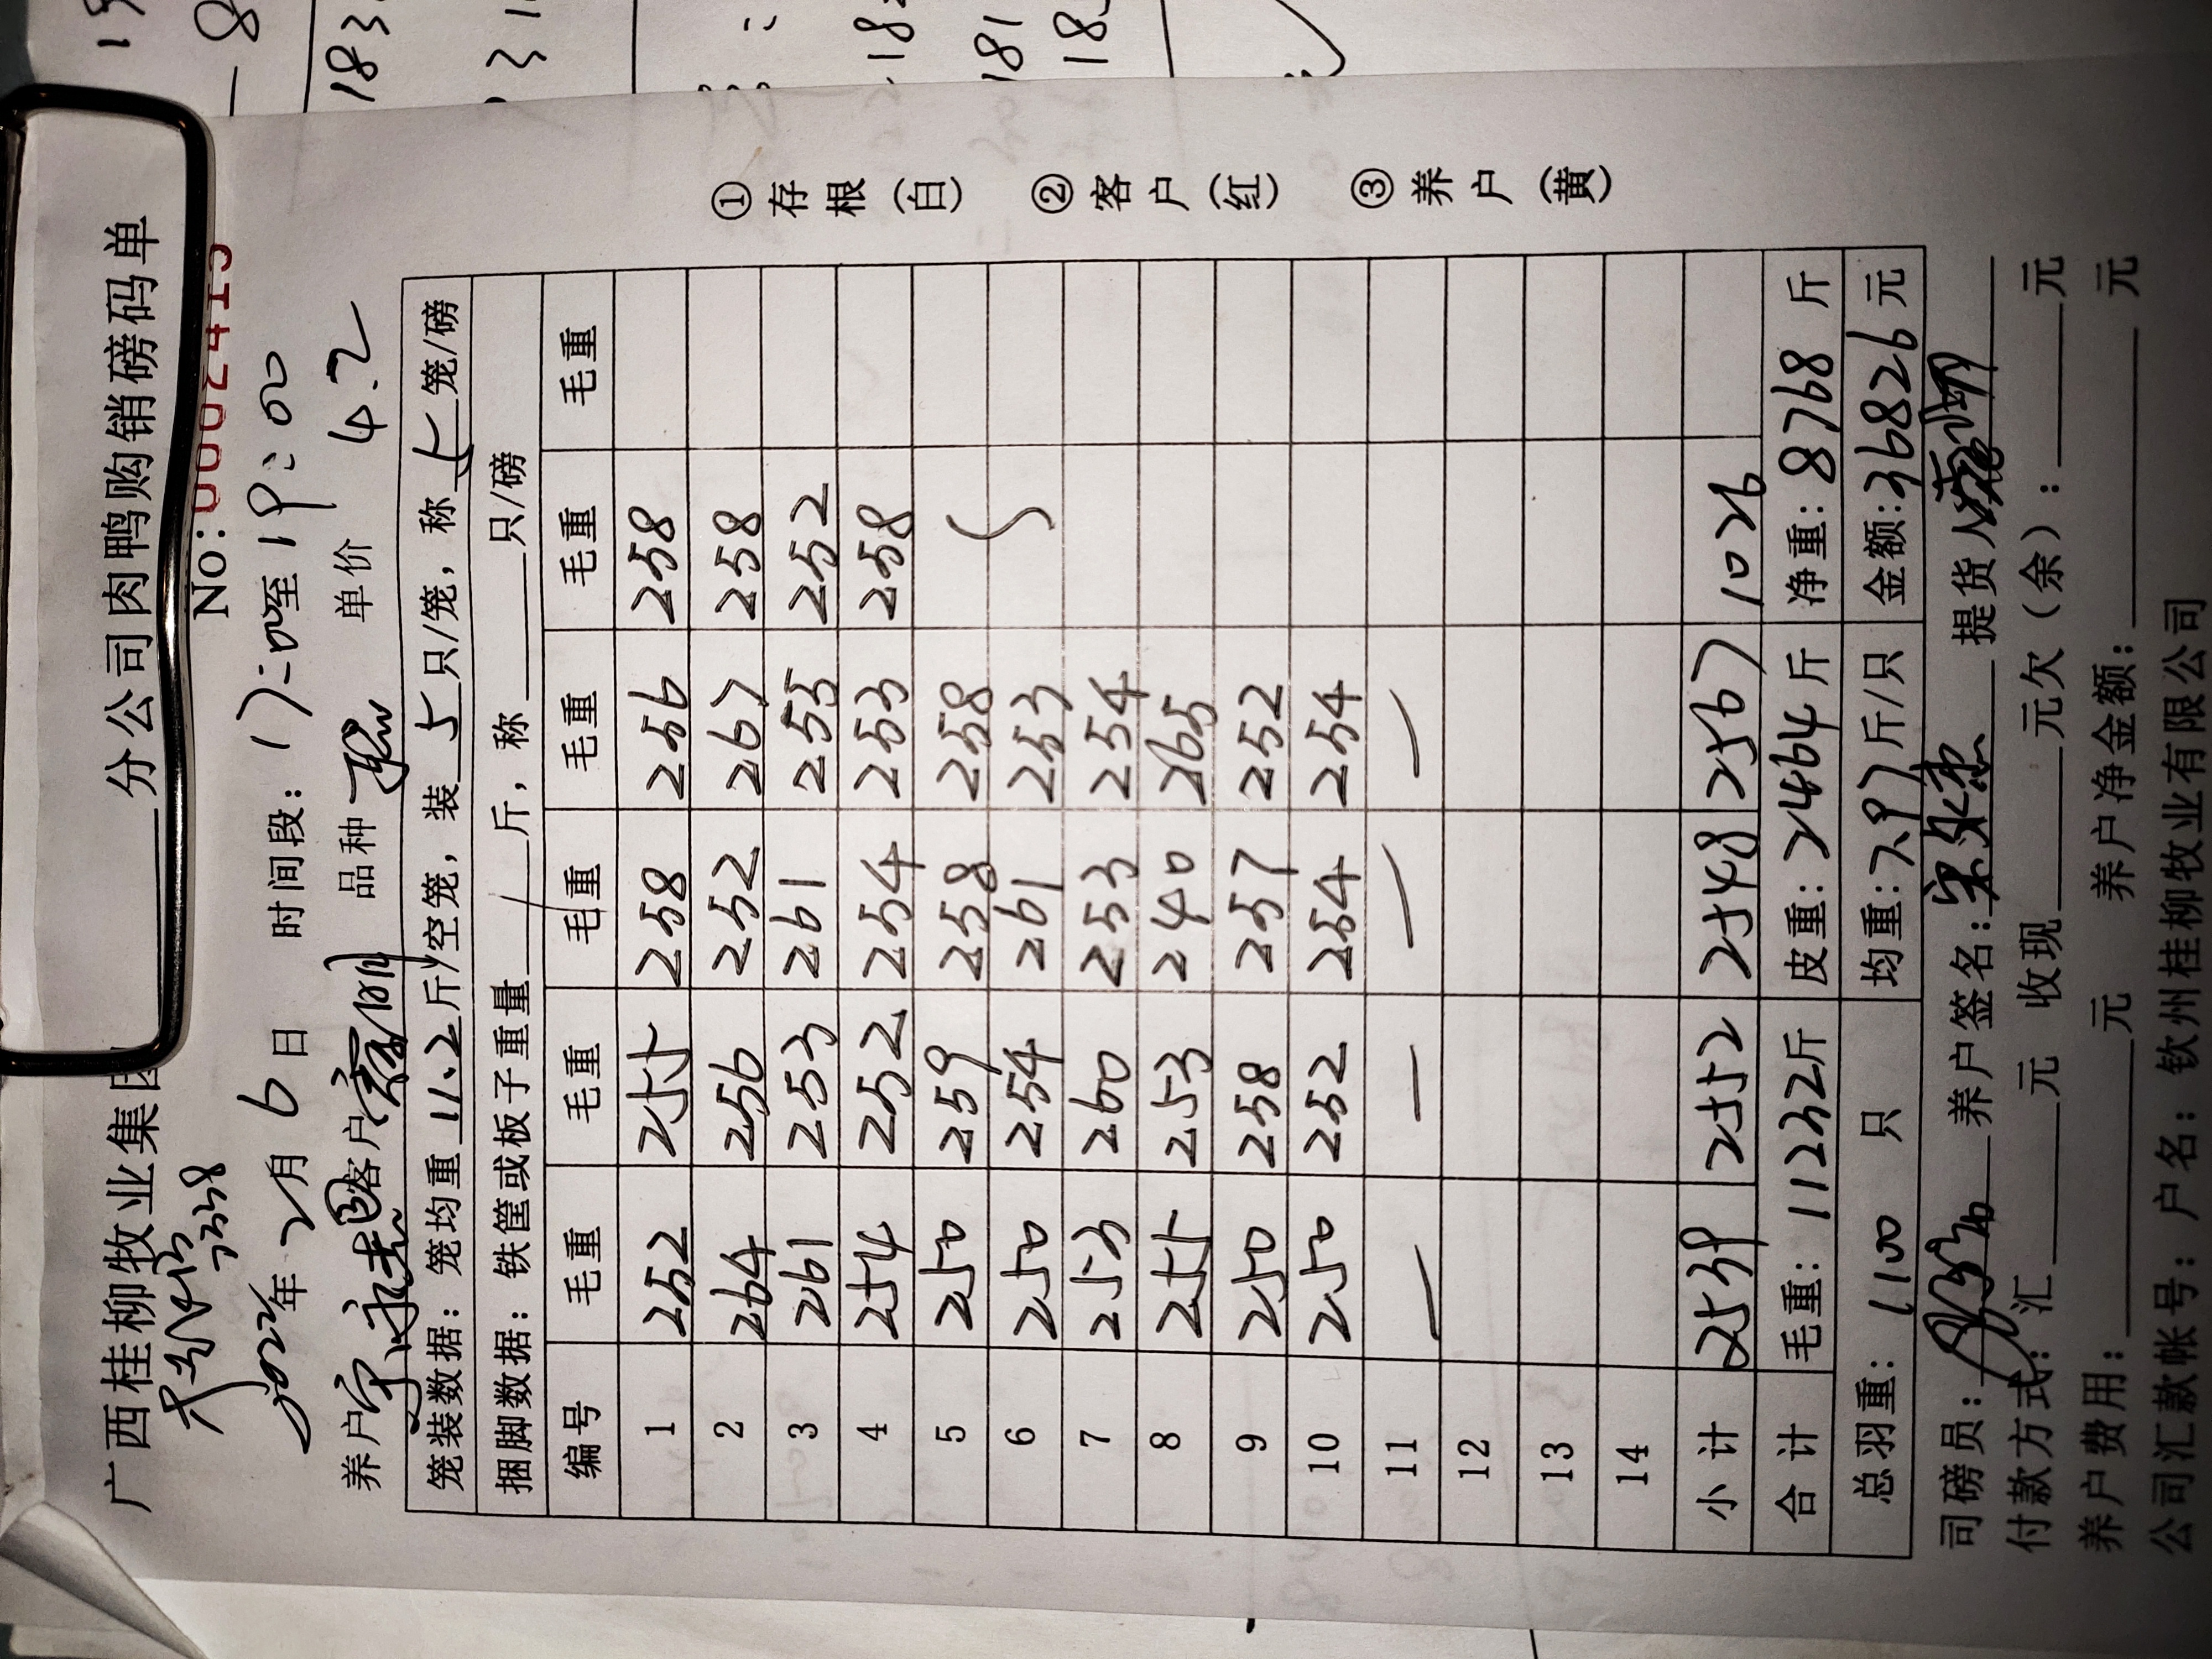 广西桂柳牧业集团 分公司肉鸭购销磅码单
7338 No:0002415
2022年2月6日 时间段:17:00至19:00
养户 客户 品种 单价 4.2
笼装数据:笼均重11.2斤/空笼,装5只/笼,称5笼/磅
捆脚数据:铁筐或板子重量 / 斤,称 只/磅
编号 毛重 毛重 毛重 毛重 毛重 毛重
1 252 255 258 256 258
2 264 256 252 267 258
3 261 253 261 255 252
4 254 252 254 253 258
5 250 259 258 258
6 250 254 261 253
7 253 260 253 254
8 255 253 240 265
9 250 258 257 252
10 250 252 254 254
11 — — — —
12
13
14
小计 2539 2552 2548 2567 1026
合计 毛重:11232斤 皮重:2464斤 净重:8768斤
总羽重:1100只 均重:7.97斤/只 金额:36826元
司磅员: 养户签名: 提货人
付款方式:汇 元 收现 元欠(余): 元
养户费用: 元 养户净金额: 元
公司汇款帐号:户名:钦州桂柳牧业有限公司
①存根(白) ②客户(红) ③养户(黄)